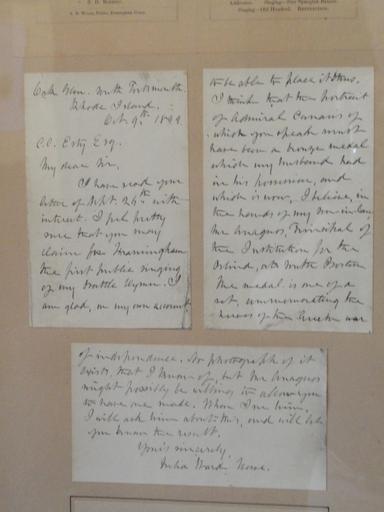 Oak Glen. South Portsmouth.
Rhode Island.
Oct. 9th 1889.
C.C. Esty Esq.
My dear Sir,
I have read your
letter of Sept. 26th with
interest. I feel pretty
sure that you may
claim for Framingham
the first public singing
of my Battle Hymn. I
am glad, on my own account,
to be able to place it thus.
I think that the portrait
of Admiral Canaris of
which you speak must
have been a bronze medal
which my husband had
in his possession, and
which is now, I believe, in
the hands of my son-in-law
Mr. Anagnos, Principal of
the Institution for the
Blind, at South Boston
The medal is one of a
set, commemorating the
heroes of the Greek war
of independence. No photograph of it
exists, that I know of, but Mr. Anagnos
might possibly be willing to allow you
to have one made. When I see him,
I will ask him about this, and will let
you know the result.
Yours sincerely,
Julia Ward Howe.